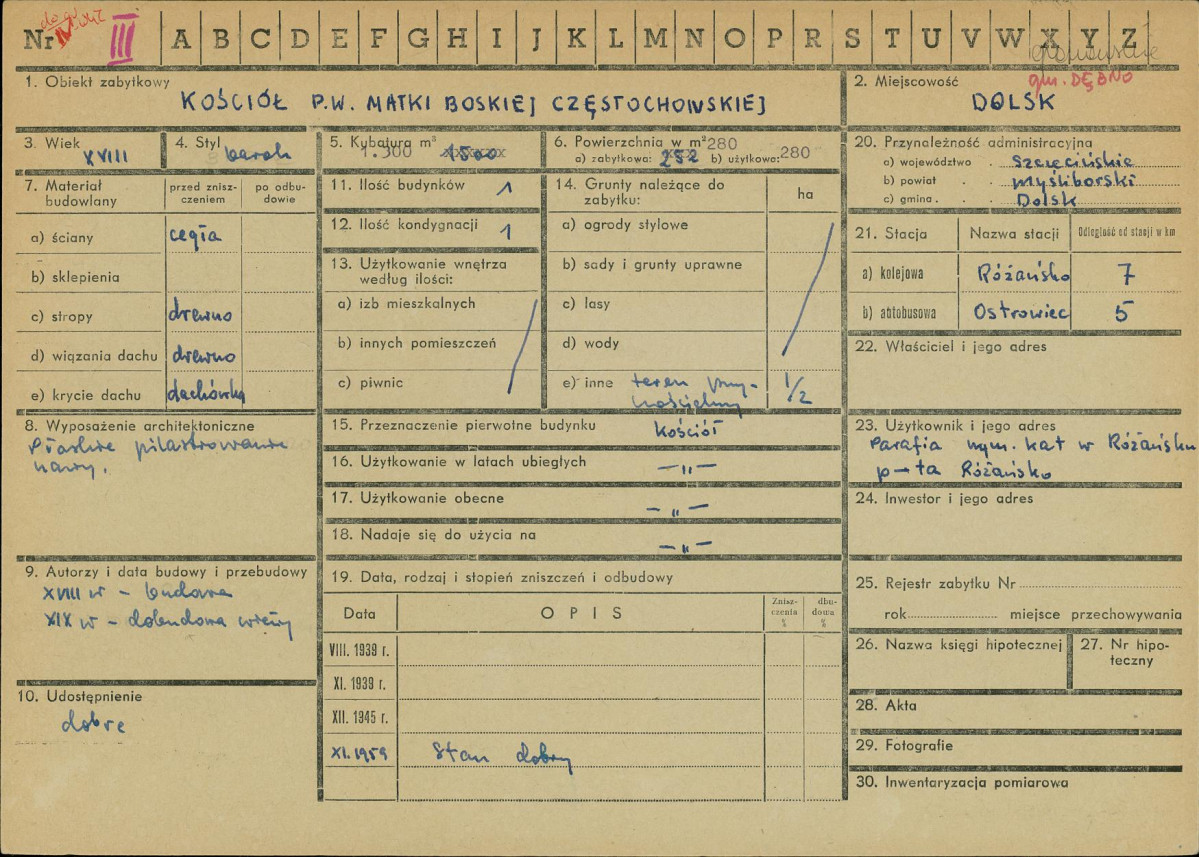 Nr III A B C D E F G H I J K L M N O P R S T U V W X Y Z
gm. DĘBNO
1. Obiekt zabytkowy
KOŚCIÓŁ P.W. MATKI BOSKIEJ CZĘSTOCHOWSKIEJ
2. Miejscowość
DOLSK
3. Wiek
XVIII
4. Styl
barok
5. Kubatura m³
1.500 1500
6. Powierzchnia w m² 280
a) zabytkowa: 252 b) użytkowa: 280
7. Materiał budowlany
przed zniszczeniem
po odbudowie
a) ściany cegła
b) sklepienia
c) stropy drewno
d) wiązania dachu drewno
e) krycie dachu dachówka
8. Wyposażenie architektoniczne
Płaskie pilastrowanie
nawy.
9. Autorzy i data budowy i przebudowy
XVIII w – budowa
XIX w – dobudowa wieży
10. Udostępnienie
dobre
11. Ilość budynków 1
12. Ilość kondygnacji 1
13. Użytkowanie wnętrza
według ilości:
a) izb mieszkalnych
b) innych pomieszczeń
c) piwnic
14. Grunty należące do
zabytku:
ha
a) ogrody stylowe
b) sady i grunty uprawne
c) lasy
d) wody
e) inne teren przy-
kościelny 1/2
15. Przeznaczenie pierwotne budynku
Kościół
16. Użytkowanie w latach ubiegłych
—„—
17. Użytkowanie obecne
—„—
18. Nadaje się do użycia na
—„—
19. Data, rodzaj i stopień zniszczeń i odbudowy
Data OPIS Zniszczenia % dbudowa %
VIII. 1939 r.
XI. 1939 r.
XII. 1945 r.
XI. 1959 Stan dobry
20. Przynależność administracyjna
a) województwo . Szczecińskie
b) powiat . . Myśliborski
c) gmina . . . Dolsk
21. Stacja Nazwa stacji Odległość od stacji w km
a) kolejowa Różańsko 7
b) autobusowa Ostrowiec 5
22. Właściciel i jego adres
23. Użytkownik i jego adres
Parafia rzym. kat w Różańsku
p-ta Różańsko
24. Inwestor i jego adres
25. Rejestr zabytku Nr
rok miejsce przechowywania
26. Nazwa księgi hipotecznej
27. Nr hipo-
teczny
28. Akta
29. Fotografie
30. Inwentaryzacja pomiarowa